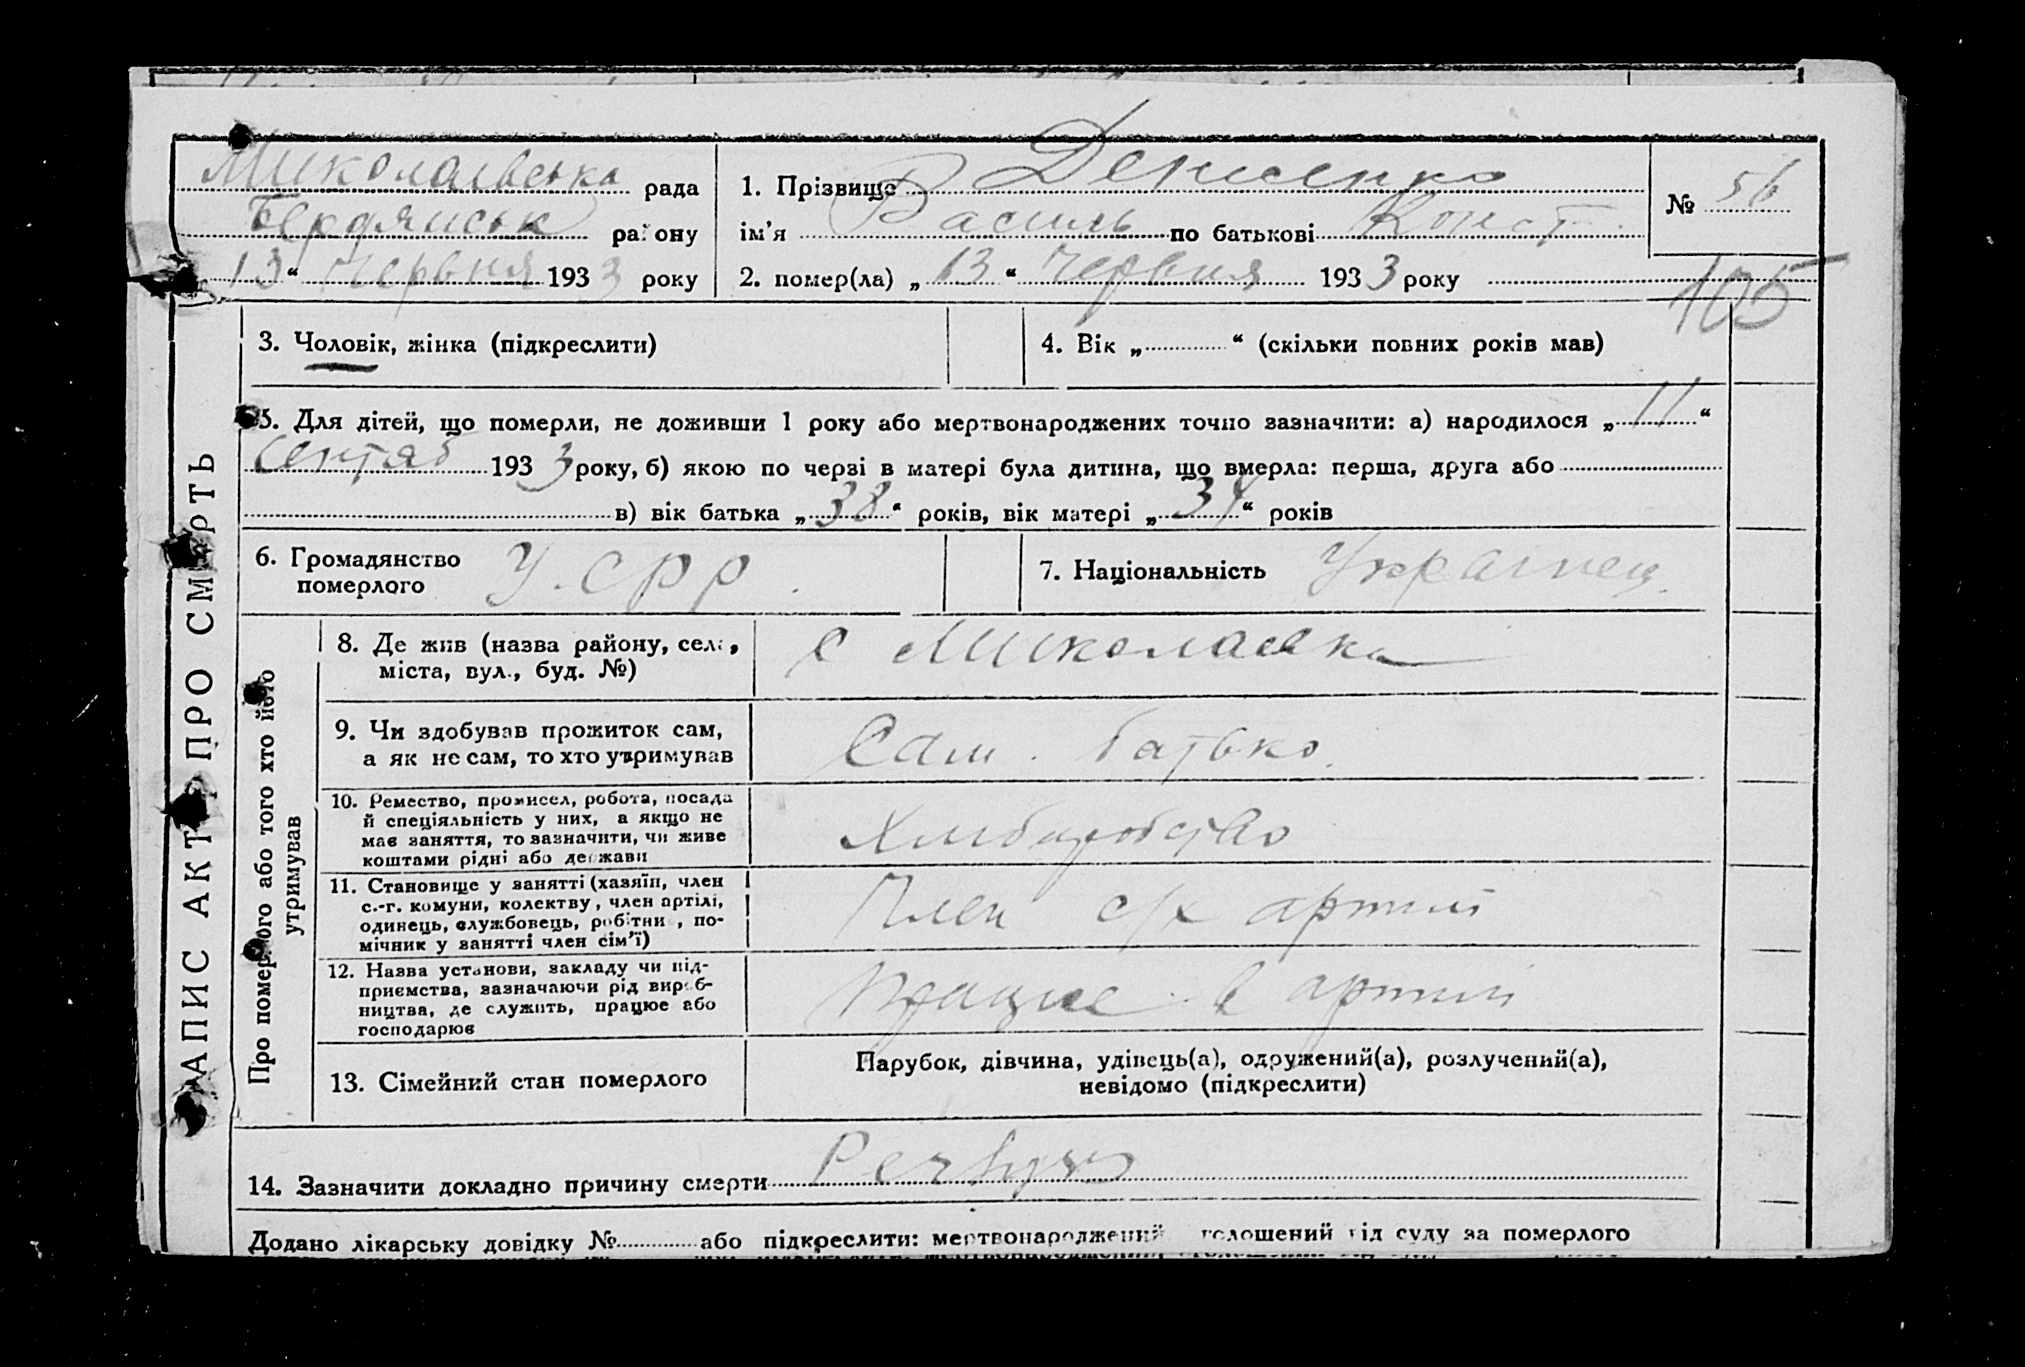 Миколаївська рада
Бердянськ району
13 “ Червня 1933 року
1. Прізвище Денисенко
ім’я Василь по батькові Конст.
2. помер(ла) „ 13 “ Червня 1933 року
№ 56
105
ЗАПИС АКТ ПРО СМЕРТЬ
3. Чоловік, жінка (підкреслити)
4. Вік „ “ (скільки повних років мав)
5. Для дітей, що померли, не доживши 1 року або мертвонароджених точно зазначити: а) народилося „ 11 “
Сентяб 1933 року, б) якою по черзі в матері була дитина, що вмерла: перша, друга або
в) вік батька „ 38 “ років, вік матері „ 34 “ років
6. Громадянство
померлого
У.СРР.
7. Національність Украінец.
Про померлого або того хто його
утримував
8. Де жив (назва району, села,
міста, вул., буд. №)
с Миколаевка
9. Чи здобував прожиток сам,
а як не сам, то хто утримував
Сам. батько.
10. Ремество, промисел, робота, посада
й спеціяльність у них, а якщо не
має заняття, то зазначити, чи живе
коштами рідні або держави
Хлиборобство
11. Становище у занятті (хазяїн, член
с.-г. комуни, колектву, член артілі,
одинець, службовець, робітник, по-
мічник у занятті член сім’ї)
Член с/х артили
12. Назва установи, закладу чи під-
приємства, зазначаючи рід вироб-
ництва, де служить, працює або
господарює
Працює в артили
13. Сімейний стан померлого
Парубок, дівчина, удівець(а), одружений(а), розлучений(а),
невідомо (підкреслити)
14. Зазначити докладно причину смерти
Додано лікарську довідку № або підкреслити: мертвонароджений голошений від суду за померлого